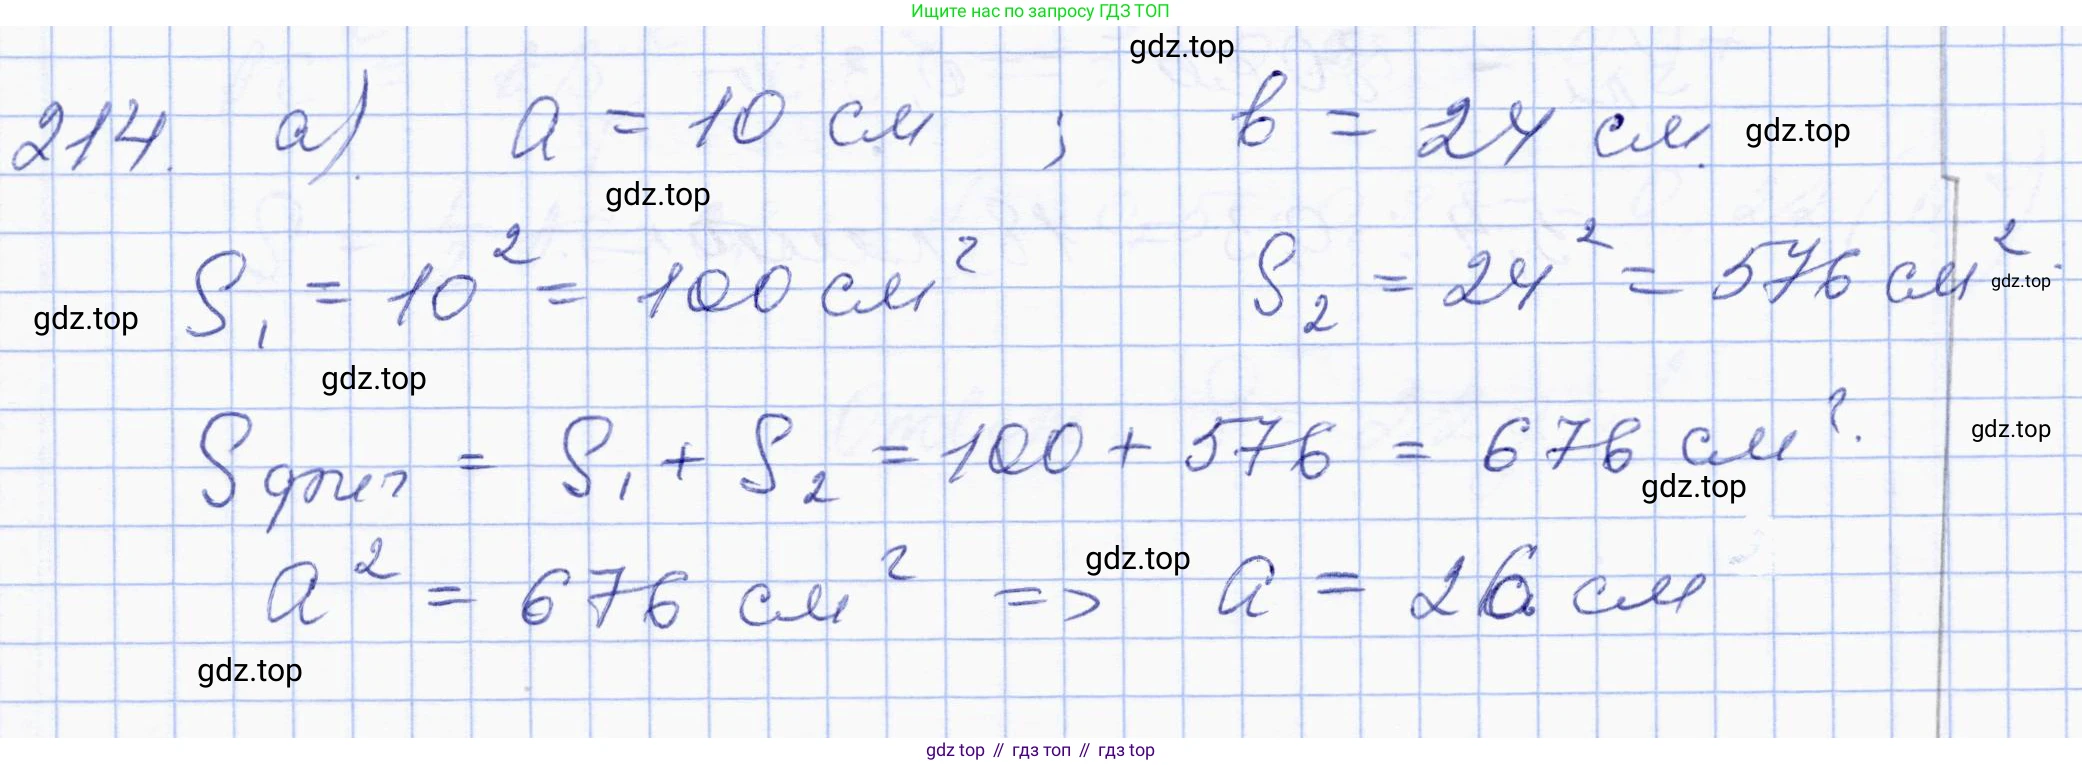 Ищите нас по запросу ГДЗ ТОП
gdz.top
214. а). a = 10 см ; b = 24 см. gdz.top
gdz.top
S₁ = 10² = 100 см² S₂ = 24² = 576 см². gdz.top
gdz.top
gdz.top
Sфиг = S₁ + S₂ = 100 + 576 = 676 см². gdz.top
gdz.top
a² = 676 см² => a = 26 см
gdz.top
gdz.top
gdz top // гдз топ // гдз top